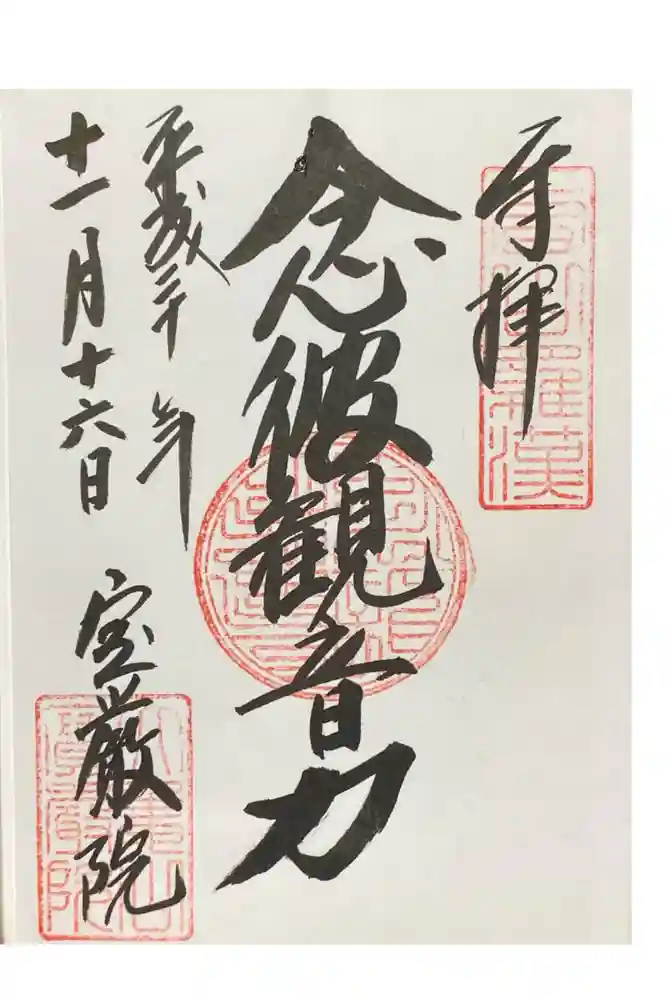 奉拝
嵐山羅漢
念彼観音力
平成三十年
十一月十六日
宝厳院